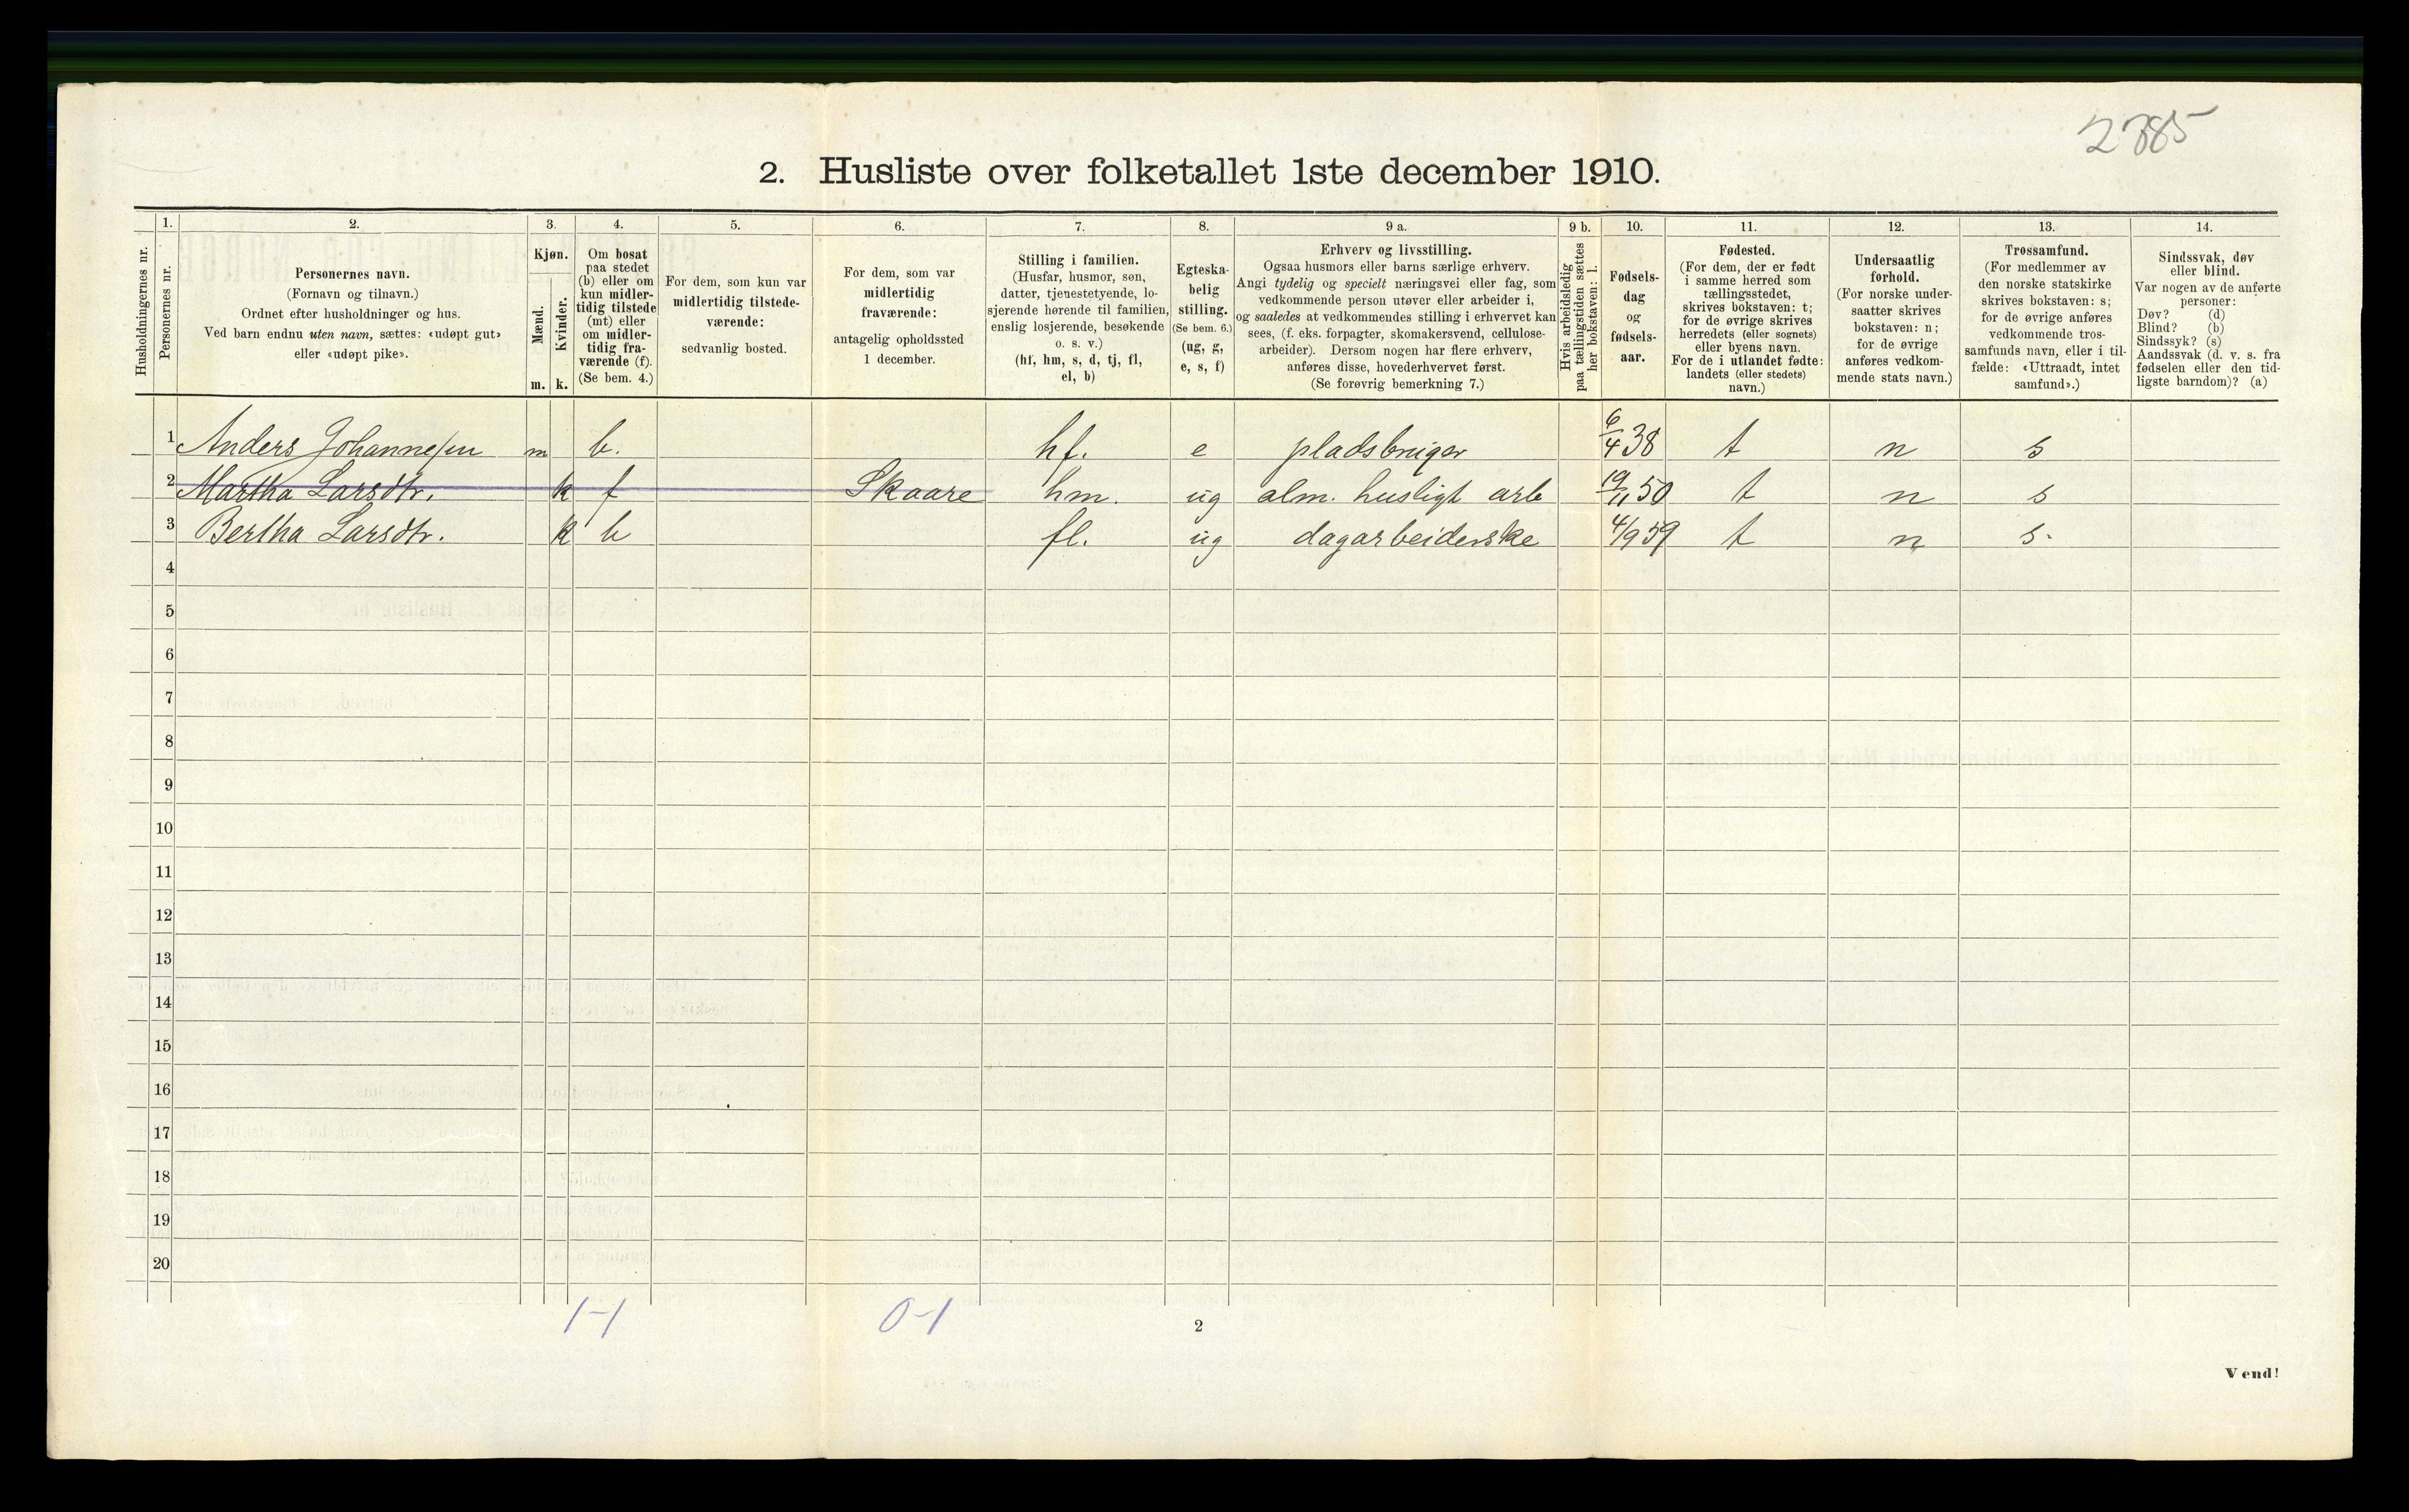 2385
2. Husliste over folketallet 1ste december 1910.
Husholdningernes nr.
1.
Personernes nr.
2.
Personernes navn.
(Fornavn og tilnavn.)
Ordnet efter husholdninger og hus.
Ved barn endnu uten navn, sættes: «udøpt gut»
eller «udøpt pike».
3.
Kjøn.
Mænd.
m.
Kvinder.
k.
4.
Om bosat
paa stedet
(b) eller om
kun midler-
tidig tilstede
(mt) eller
om midler-
tidig fra-
værende (f).
(Se bem. 4.)
5.
For dem, som kun var
midlertidig tilstede-
værende:
sedvanlig bosted.
6.
For dem, som var
midlertidig
fraværende:
antagelig opholdssted
1 december.
7.
Stilling i familien.
(Husfar, husmor, søn,
datter, tjenestetyende, lo-
sjerende hørende til familien,
enslig losjerende, besøkende
o. s. v.)
(hf, hm, s, d, tj, fl,
el, b)
8.
Egteska-
belig
stilling.
(Se bem. 6.)
(ug, g,
e, s, f)
9 a.
Erhverv og livsstilling.
Ogsaa husmors eller barns særlige erhverv.
Angi tydelig og specielt næringsvei eller fag, som
vedkommende person utøver eller arbeider i,
og saaledes at vedkommendes stilling i erhvervet kan
sees, (f. eks. forpagter, skomakersvend, cellulose-
arbeider). Dersom nogen har flere erhverv,
anføres disse, hovederhvervet først.
(Se forøvrig bemerkning 7.)
9 b.
Hvis arbeidsledig
paa tællingstiden sættes
her bokstaven: l.
10.
Fødsels-
dag
og
fødsels-
aar.
11.
Fødested.
(For dem, der er født
i samme herred som
tællingsstedet,
skrives bokstaven: t;
for de øvrige skrives
herredets (eller sognets)
eller byens navn.
For de i utlandet fødte:
landets (eller stedets)
navn.)
12.
Undersaatlig
forhold.
(For norske under-
saatter skrives
bokstaven: n;
for de øvrige
anføres vedkom-
mende stats navn.)
13.
Trossamfund.
(For medlemmer av
den norske statskirke
skrives bokstaven: s;
for de øvrige anføres
vedkommende tros-
samfunds navn, eller i til-
fælde: «Uttraadt, intet
samfund».)
14.
Sindssvak, døv
eller blind.
Var nogen av de anførte
personer:
Døv? (d)
Blind? (b)
Sindssyk? (s)
Aandssvak (d. v. s. fra
fødselen eller den tid-
ligste barndom)? (a)
1 Anders Johannesen m b. hf. e pladsbruger 6/4 38 t n s
2 Martha Larsdtr. k f Skaare hm. ug alm. husligt arb 19/11 50 t n s
3 Bertha Larsdtr. k b fl. ug dagarbeiderske 4/9 59 t n s.
4
5
6
7
8
9
10
11
12
13
14
15
16
17
18
19
20
1-1 0-1
2
Vend!